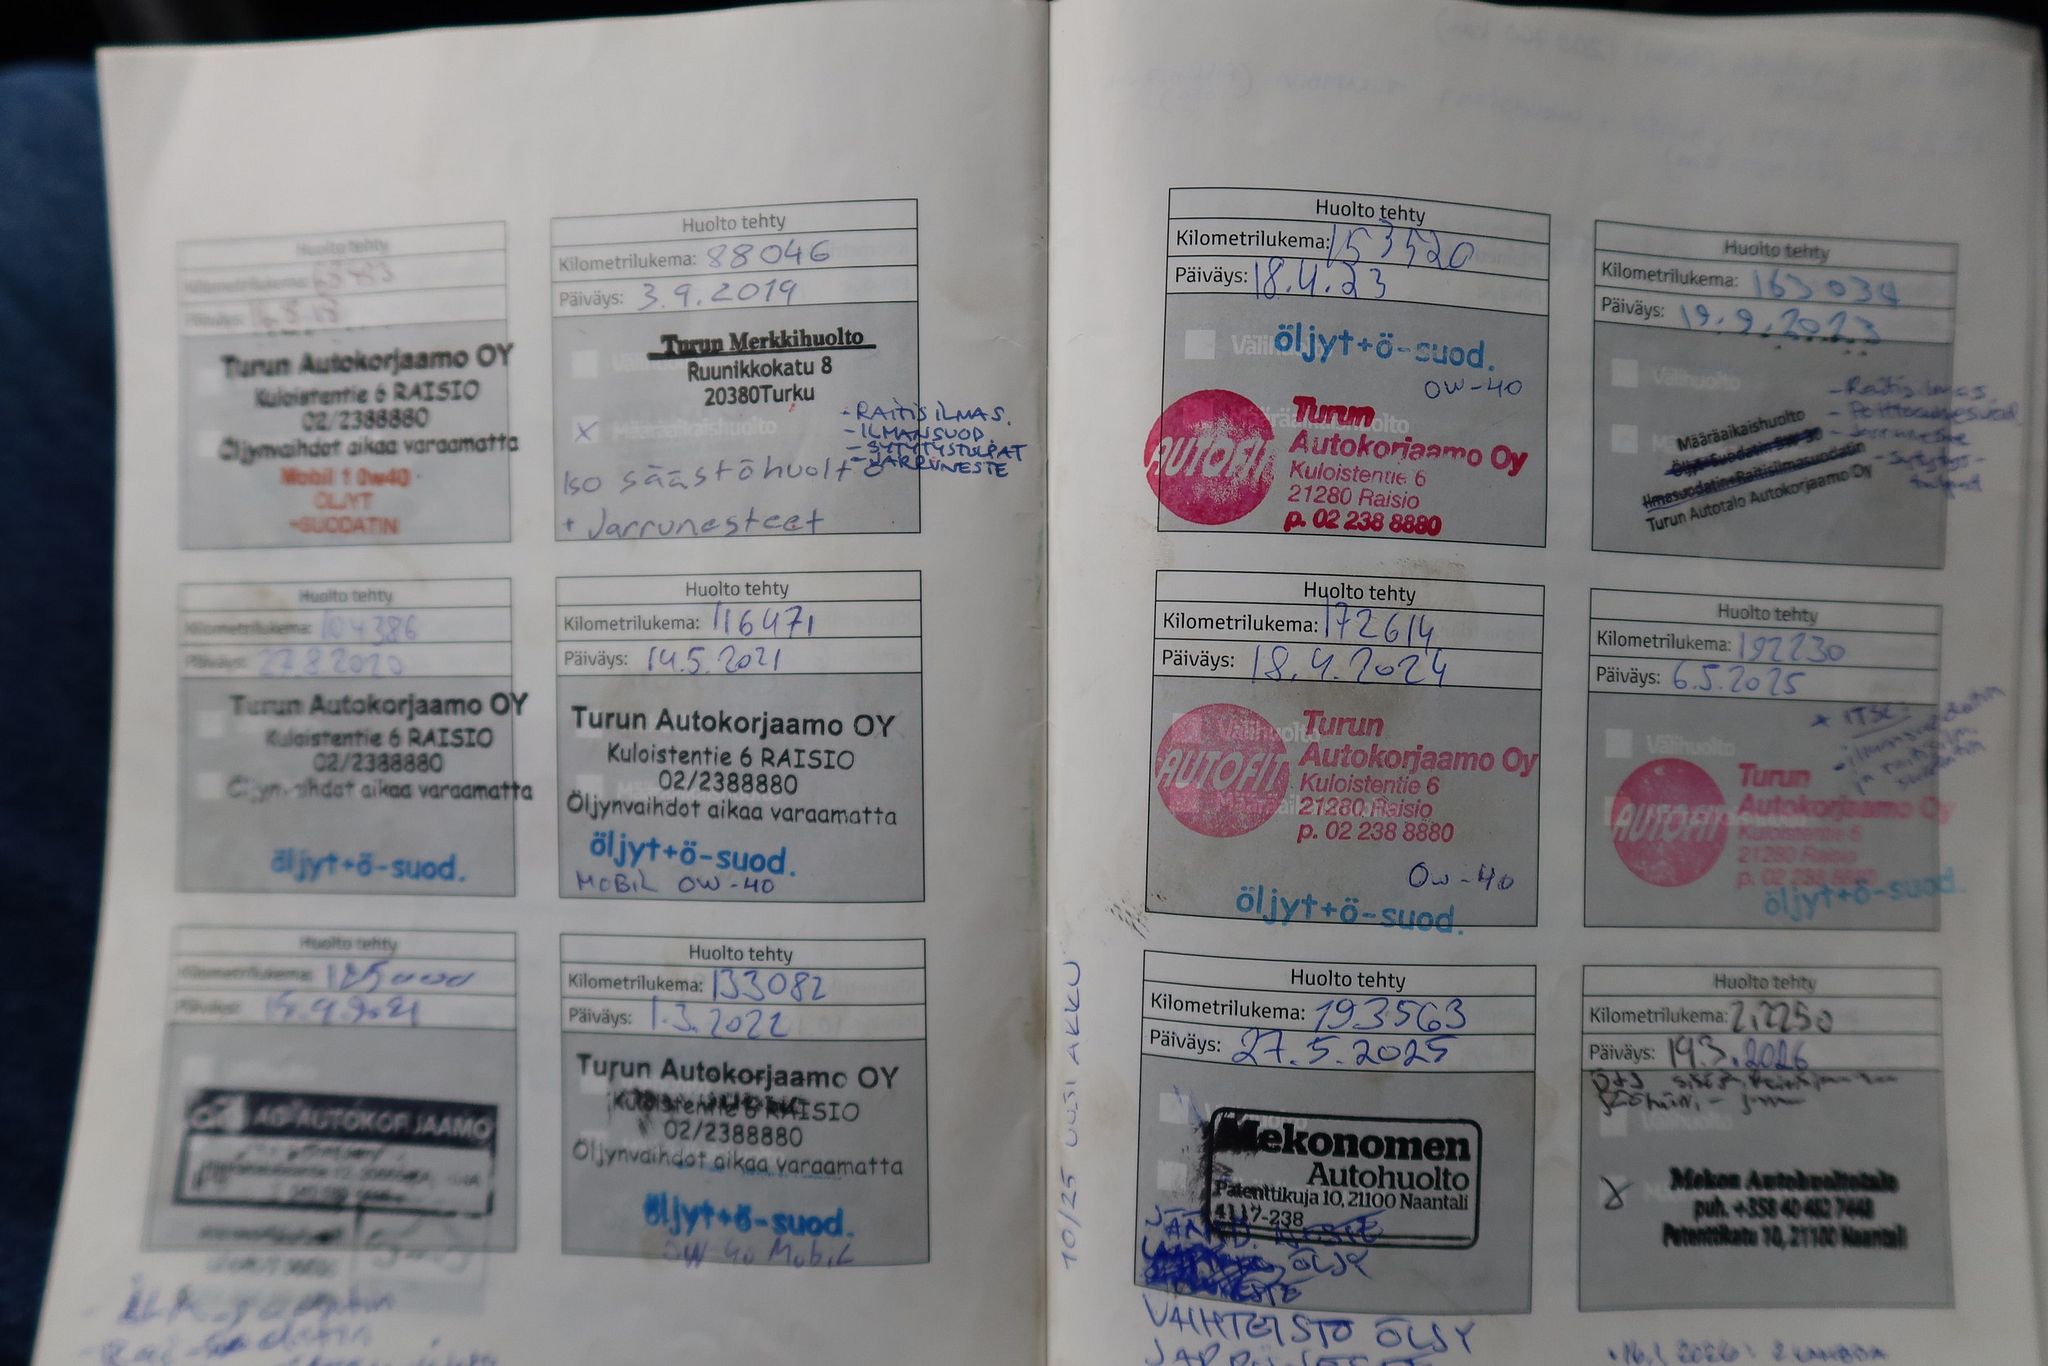 Huolto tehty
Kilometrilukema:
Päiväys:
Turun Autokorjaamo OY
Kuloistentie 6 RAISIO
02/2388880
Öljynvaihdot aikaa varaamatta
Mobil 1 0w40
ÖLJYT
+SUODATIN
Huolto tehty
Kilometrilukema: 88046
Päiväys: 3.9.2019
Turun Merkkihuolto
Ruunikkokatu 8
20380Turku
Välihuolto
Määräaikaishuolto
- RAITISILMAS.
- ILMANSUOD.
- SYTYTYSTULPAT
- JARRUNESTE
Iso säästöhuolto
+ Jarrunesteet
Huolto tehty
Kilometrilukema: 104386
Päiväys: 27.8.2020
Turun Autokorjaamo OY
Kuloistentie 6 RAISIO
02/2388880
Öljynvaihdot aikaa varaamatta
öljyt+ö-suod.
Huolto tehty
Kilometrilukema: 116471
Päiväys: 14.5.2021
Turun Autokorjaamo OY
Kuloistentie 6 RAISIO
02/2388880
Öljynvaihdot aikaa varaamatta
öljyt+ö-suod.
MOBIL 0W-40
Huolto tehty
Kilometrilukema: 125000
Päiväys:
AD-AUTOKORJAAMO
Huolto tehty
Kilometrilukema: 133082
Päiväys: 1.3.2022
Turun Autokorjaamo OY
Kuloistentie 6 RAISIO
02/2388880
Öljynvaihdot aikaa varaamatta
öljyt+ö-suod.
0W 40 Mobil
Huolto tehty
Kilometrilukema: 153520
Päiväys: 18.4.23
Välihuolto
öljyt+ö-suod.
0W-40
Määräaikaishuolto
AUTOFIT
Turun
Autokorjaamo Oy
Kuloistentie 6
21280 Raisio
p. 02 238 8880
Huolto tehty
Kilometrilukema: 163034
Päiväys: 19.9.2023
Välihuolto
- Raitisilmas.
Määräaikaishuolto
- Jarruneste
Ilmasuodatin+Raitisilmasuodatin
Turun Autotalo Autokorjaamo Oy
Huolto tehty
Kilometrilukema: 172614
Päiväys: 18.4.2024
Välihuolto
AUTOFIT
Turun
Autokorjaamo Oy
Kuloistentie 6
21280 Raisio
p. 02 238 8880
0w-40
öljyt+ö-suod.
Huolto tehty
Kilometrilukema: 192230
Päiväys: 6.5.2025
* ITSE:
Välihuolto
AUTOFIT
Turun
Autokorjaamo Oy
Kuloistentie 6
21280 Raisio
p. 02 238 8880
öljyt+ö-suod.
10/25 UUSI AKKU
Huolto tehty
Kilometrilukema: 193563
Päiväys: 27.5.2025
Mekonomen
Autohuolto
Patenttikuja 10, 21100 Naantali
4117-238
ÖLJY
VAIHTEISTO ÖLJY
Huolto tehty
Kilometrilukema:
Päiväys: 19.3.2026
Välihuolto
Mekon Autohuoltotalo
puh. +358 40 482 7448
Patenttikatu 10, 21100 Naantali